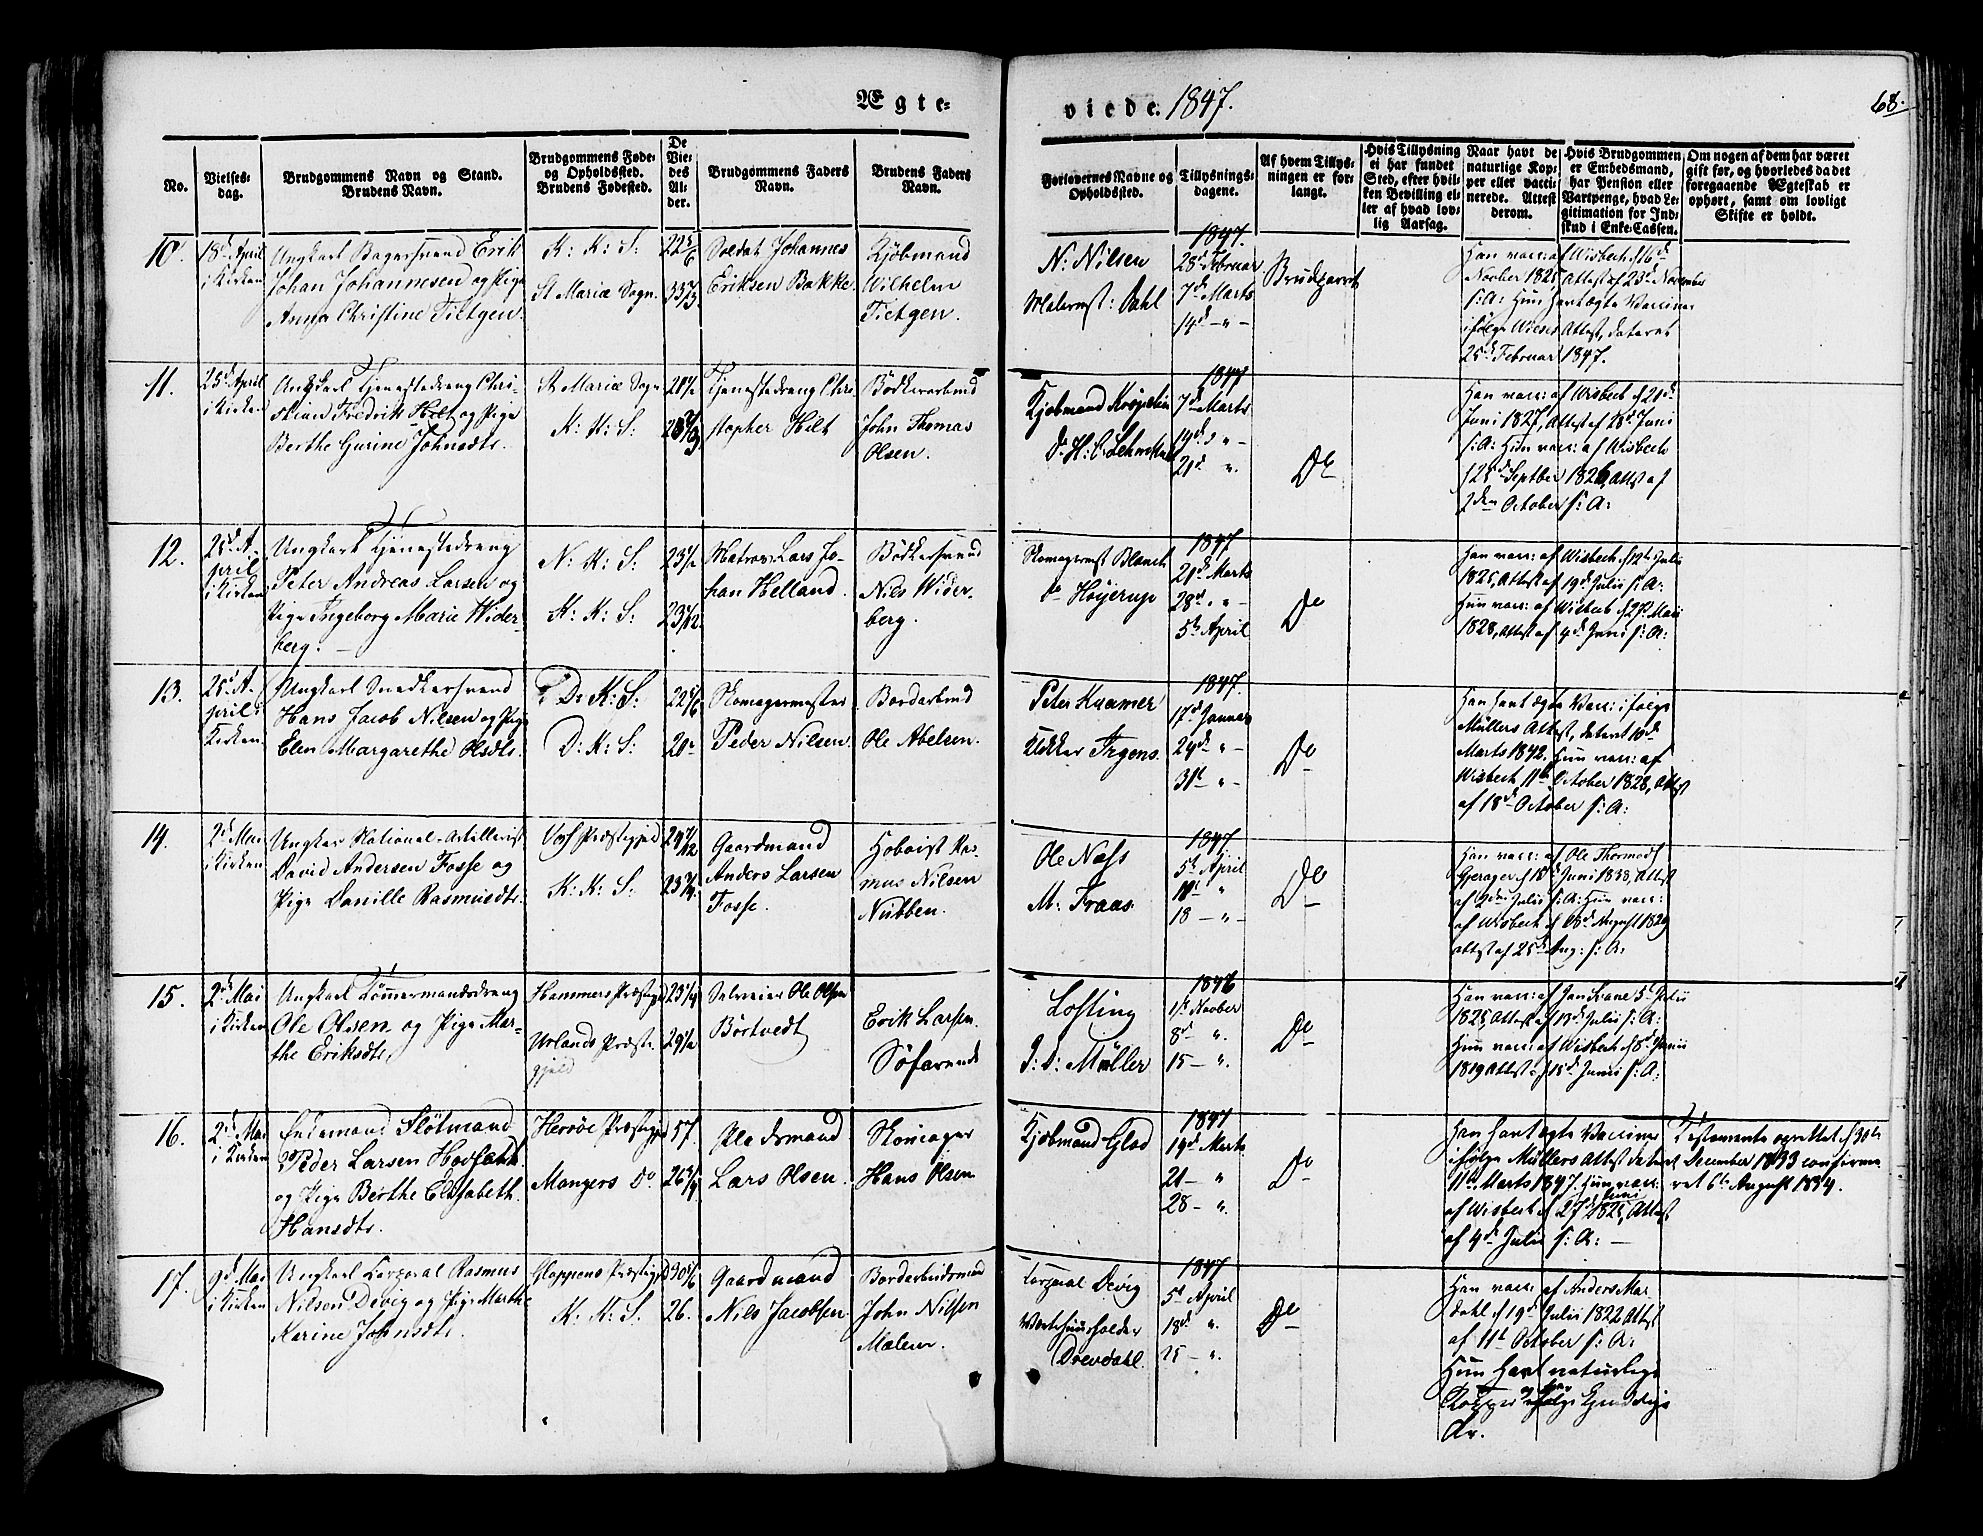 Ægte-
viede. 1847.
68.
No.
Vielses-
dag.
Brudgommens Navn og Stand.
Brudens Navn.
Brudgommens Føde-
og Opholdssted.
Brudens Fødested.
De
Vie-
des
Al-
der.
Brudgommens Faders
Navn.
Brudens Faders
Navn.
Forlovernes Navne og
Opholdssted.
Tillysnings-
dagene.
Af hvem Tillys-
ningen er for-
langt.
Hvis Tillysning
ei har fundet
Sted, efter hvil-
ken Bevilling el-
ler af hvad lov-
lig Aarsag.
Naar havt de
naturlige Kop-
per eller vacci-
nerede. Attest
derom.
Hvis Brudgommen
er Embedsmand,
har Pension eller
Vartpenge, hvad Le-
gitimation for Ind-
skud i Enke-Cassen.
Om nogen af dem har været
gift før, og hvorledes da det
foregaaende Ægteskab er
ophørt, samt om lovligt
Skifte er holdt.
10.
18d April
i Kirken
Ungkarl Bagersvend Erik
Johan Johannesen og Pige
Anna Christine Tietgen.
K: K: S:
St Mariæ Sogn.
Soldat Johannes
Eriksen Bakke
Kjøbmand
Wilhelm
Tietgen.
N: Nilsen
Malermst: Dahl
1847.
28d Februar
7d Marts
14d - " -
Brudgommen
Han vacc: af Wisbech d 16d
Novber 1825 Attest af 23d November
s: A: Hun havt ægte Vacciner
ifølge Wieses Attest, dateret
25d Februar 1847.
11.
25d April
i Kirken
Ungkarl Tjenestedreng Chri-
stian Fredrik Hilt og Pige
Berthe Gurine Johnsdtr.
St Mariæ Sogn
K: K: S:
Tjenestedreng Chri-
stopher Hilt
Bødkersvend
John Thomas
Olsen.
Kjøbmand Krøpelin
Do H: C: Lehmkul
1847
7d Marts
14d " -
21d ".
Do
Han vacc: af Wisbech d 21d
Juni 1827, Attest af 28d Juni
s: A: Hun vacc: af Wisbech
d 25d Septber 1826, Attest af
2den October s: A:
12.
25d A-
pril
i Kirken
Ungkarl Tjenestedreng
Peter Andreas Larsen og
Pige Ingeborg Marie Wider-
berg. -
N: K: S:
K: K: S:
Matros Lars Jo-
han Helland.
Bødkersvend
Nils Wider-
berg.
Skomagermst Blanch
Do Høyerup
1847
21d Marts
28d " -
5te April
Do
Han vacc: af Wisbech d 12te Julii
1825, Attest af 19d Julii s: A:
Hun vacc: af Wisbech d 27d Maii
1828, Attest af 4d Juni s: A:
13.
25d A-
pril i
Kirken.
Ungkarl Snedkersvend
Hans Jacob Nilsen og Pige
Elen Margarethe Olsdtr.
D: K: S:
D: K: S:
Skomagermester
Peder Nilsen.
Bordarbeid
Ole Abelsen.
Peter Kramer
Klokker Irgens.
1847.
17d Januar
24d " -
31d " -
Do
Han havt ægte Vacc: ifølge
Müllers Attest, dateret 10d
Marts 1842. Hun vacc: af
Wisbech 11te October 1828, Attest
af 18d October s: A:
14.
2d Mai
i Kirken
Ungkar National-Artillerist
David Andersen Fosse og
Pige Danille Rasmusdtr.
Vos Præstegjed
K: K: S:
Gaardmand
Anders Larsen
Fosse.
Hoboist Ras-
mus Nilsen
Nubben.
Ole Næss
M: Traas.
1847.
5te April
11te "
18 - " -
Do
Han vacc: af Ole Thormods
Gjerager d 18d Juni 1838, Attest
af 2den Julii s: A: Hun vacc:
af Wisbech d 18d August 1829
Attest af 25d Aug: s: A:
15.
2d Mai
i Kirken
Ungkarl Tømmermandsdreng
Ole Olsen og Pige Mar-
the Eriksdtr.
Hammers Præstegjd
Urlands Præste-
gjeld
Selveier Ole Olsen
Børtvedt
Erik Larsen.
Søfarende
Lofting
J: D: Müller
1846
1st Novber
8d - ".
15 - ".
Do
Han vacc: af Jan Trane 5te Julii
1825, Attest af 13d Julii s: A:
Hun vacc: af Wisbech d 8d Junii
1819 Attest af 15d Junii s: A:
16.
2d Mai
i Kirken
Enkemand Fløtmand
Peder Larsen
og Pige Berthe Elisabeth
Hansdtr.
Herrøe Præstegjd
Mangers Do
57.
Pladsmand
Lars Olsen.
Skomager
Hans Olsen
Kjøbmand Glad
1847
19d Marts
21 - "
28 - ".
Do
Han havt ægte Vacciner
ifølge Müllers Attest dateret
11te Marts 1847. Hun vacc:
af Wisbech d 27d Juni 1825, Attest
af 4d Julii s: A: -
Testamente oprettet d 30te
December 1833 confirme-
ret 6te August 1834.
17.
9d Mai
i Kirken
Ungkarl Corporal Rasmus
Nilsen Devig og Pige Marthe
Karine Johnsdtr.
Gloppens Præstegjd
K: K: S:
26.
Gaardmand
Nils Jacobsen
Bordarbeidsmand
John Nilsen
Corporal Devig
Drevdahl.
1847
5te April
18d ".
25 - ".
Do
Han vacc: af Anders Mar-
dahl d 19d Julii 1822 Attest
af 11te October s: A:
Hun havt naturlige
Kopper
Ar.